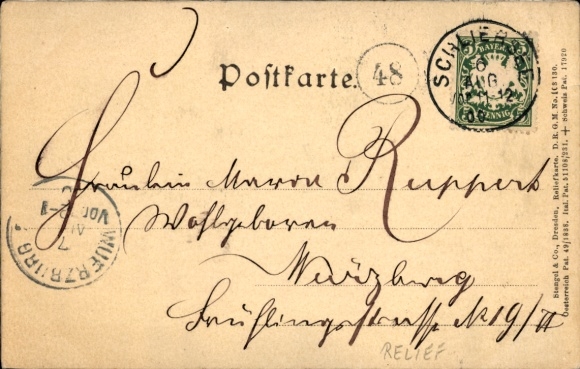 Postkarte.
48
SCHLIERSEE
6
AUG
BAYERN
5 5
PFENNIG
Fräulein Maron Ruppert
Wohlgeboren
Würzburg
Frühlingsstrasse N 19/II
WUERZBURG
7
VOR
RELIEF
Stengel & Co., Dresden, Reliefkarte. D. R. G. M. No.
Oesterreich Pat. 49/1838. Ital. Pat. 51108/231. + Schweiz Pat. 17920